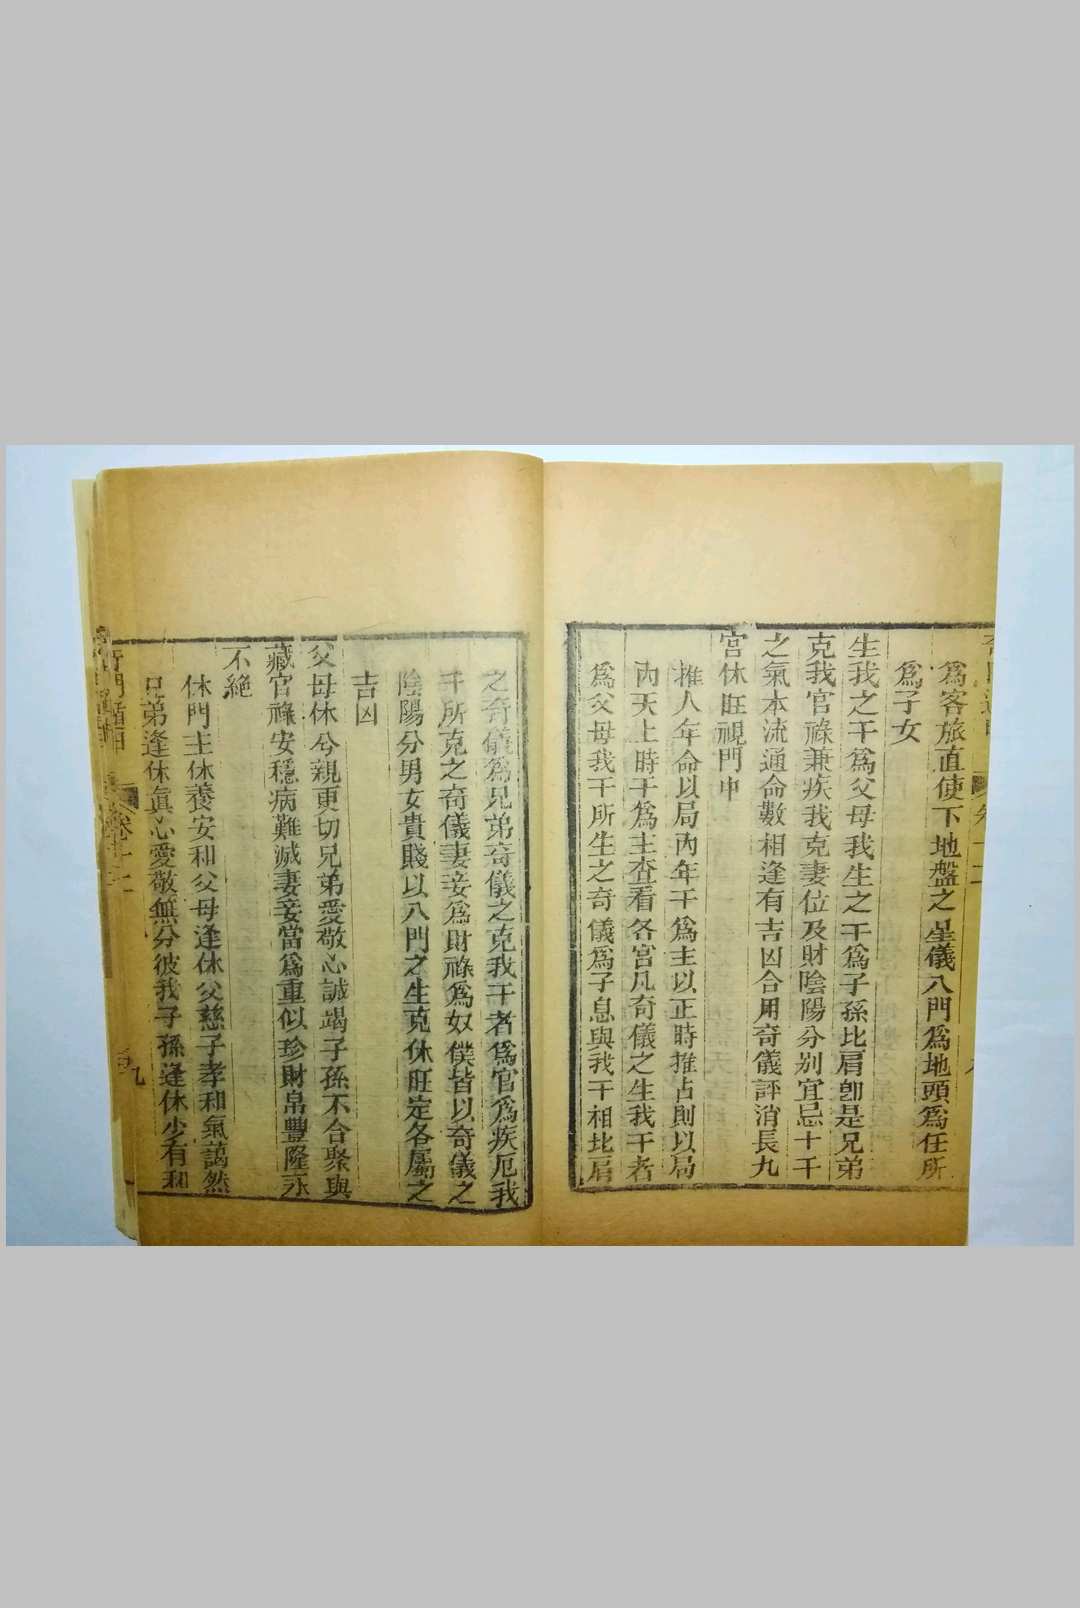 爲客旅直使下地盤之星儀八門爲地頭爲任所
爲子女
生我之干爲父母我生之干爲子孫比肩卽是兄弟
克我官祿兼疾我克妻位及財陰陽分别宜忌十干
之氣本流通命數相逢有吉凶合用奇儀評消長九
宮休旺視門中
推人年命以局內年干爲主以正時推占則以局
內天上時干爲主查看各宮凡奇儀之生我干者
爲父母我干所生之奇儀爲子息與我干相比肩
之奇儀爲兄弟奇儀之克我干者爲官爲疾厄我
干所克之奇儀妻妾爲財祿爲奴僕皆以奇儀之
陰陽分男女貴賤以八門之生克休旺定各屬之
吉凶
父母休兮親更切兄弟愛敬心誠竭子孫不合聚與
藏官祿安穩病難滅妻妾當爲重似珍財帛豐隆永
不絕
休門主休養安和父母逢休父慈子孝和氣藹然
兄弟逢休眞心愛敬無分彼我子孫逢休少有和
卷十二
九